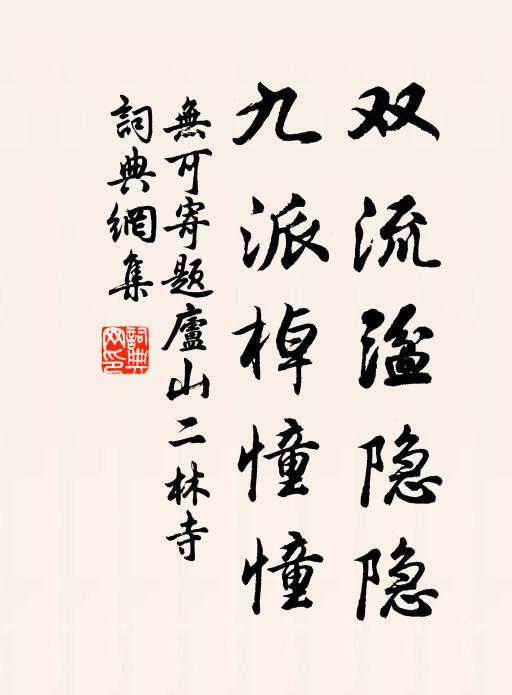 双流溢隐隐
九派棹憧憧
無可寄题廬山二林寺
詞典網集
詞典網印